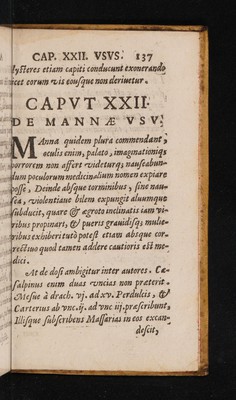 CAP. XXII. VSVS. 137
lysteres etiam capiti conducunt exonerando
corum vis eousque non deriuetur.
CAPVT XXII.
DE MANNÆ VSV.
MAnna quidem plura commendant,
oculis enim, palato, imaginationiq;
horrorem non affert videturq; nauseabun-
dum poculorum medicinalium nomen expiare
posse. Deinde absque torminibus, sine nau-
sea, violentiaue bilem expungit aluumque
subducit, quare & ægroto inclinatis iam vi-
ribus propinari, & pueris grauidisq; mulie-
ribus exhiberi tutò potest etiam absque cor-
rectiuo quod tamen addere cautioris est me-
dici.
At de dosi ambigitur inter autores. Cæ-
salpinus enim duas vncias non præterit.
Mesue à drach. vj. ad xv. Perdulcis, &
Carterius ab vnc. ij. ad vnc iij. præscribunt,
Illisque subscribens Massarias in eos excan-
descit,